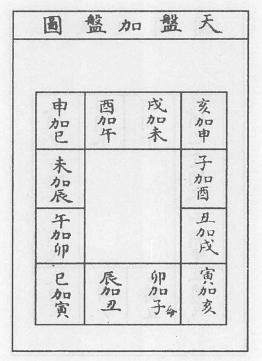 天盤加盤圖
亥加申
戌加未
酉加午
申加巳
子加酉
未加辰
丑加戌
午加卯
寅加亥
卯加子
辰加丑
巳加寅